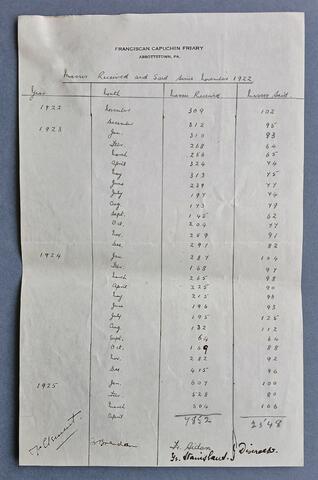 FRANCISCAN CAPUCHIN FRIARY
ABBOTTSTOWN, PA.
Masses Received and Said since November 1922
Year Month Masses Received Masses Said
1922 November 309 102
December 312 95
1923 Jan. 310 83
Feb. 268 64
March 256 65
April 324 74
May 313 75
June 239 77
July 197 74
Aug. 173 79
Sept. 145 62
Oct. 204 77
Nov. 259 91
Dec. 291 82
1924 Jan. 287 104
Feb. 168 97
March 265 98
April 225 90
May 215 98
June 196 93
July 195 125
Aug. 132 112
Sept. 64 64
Oct. 169 88
Nov. 282 92
Dec. 415 96
1925 Jan. 607 100
Feb. 528 80
March 504 106
April 7852 2548
Fr. Clement. Fr. Brendan Fr. Aidan
Fr. Stanislaus. } Discreets.